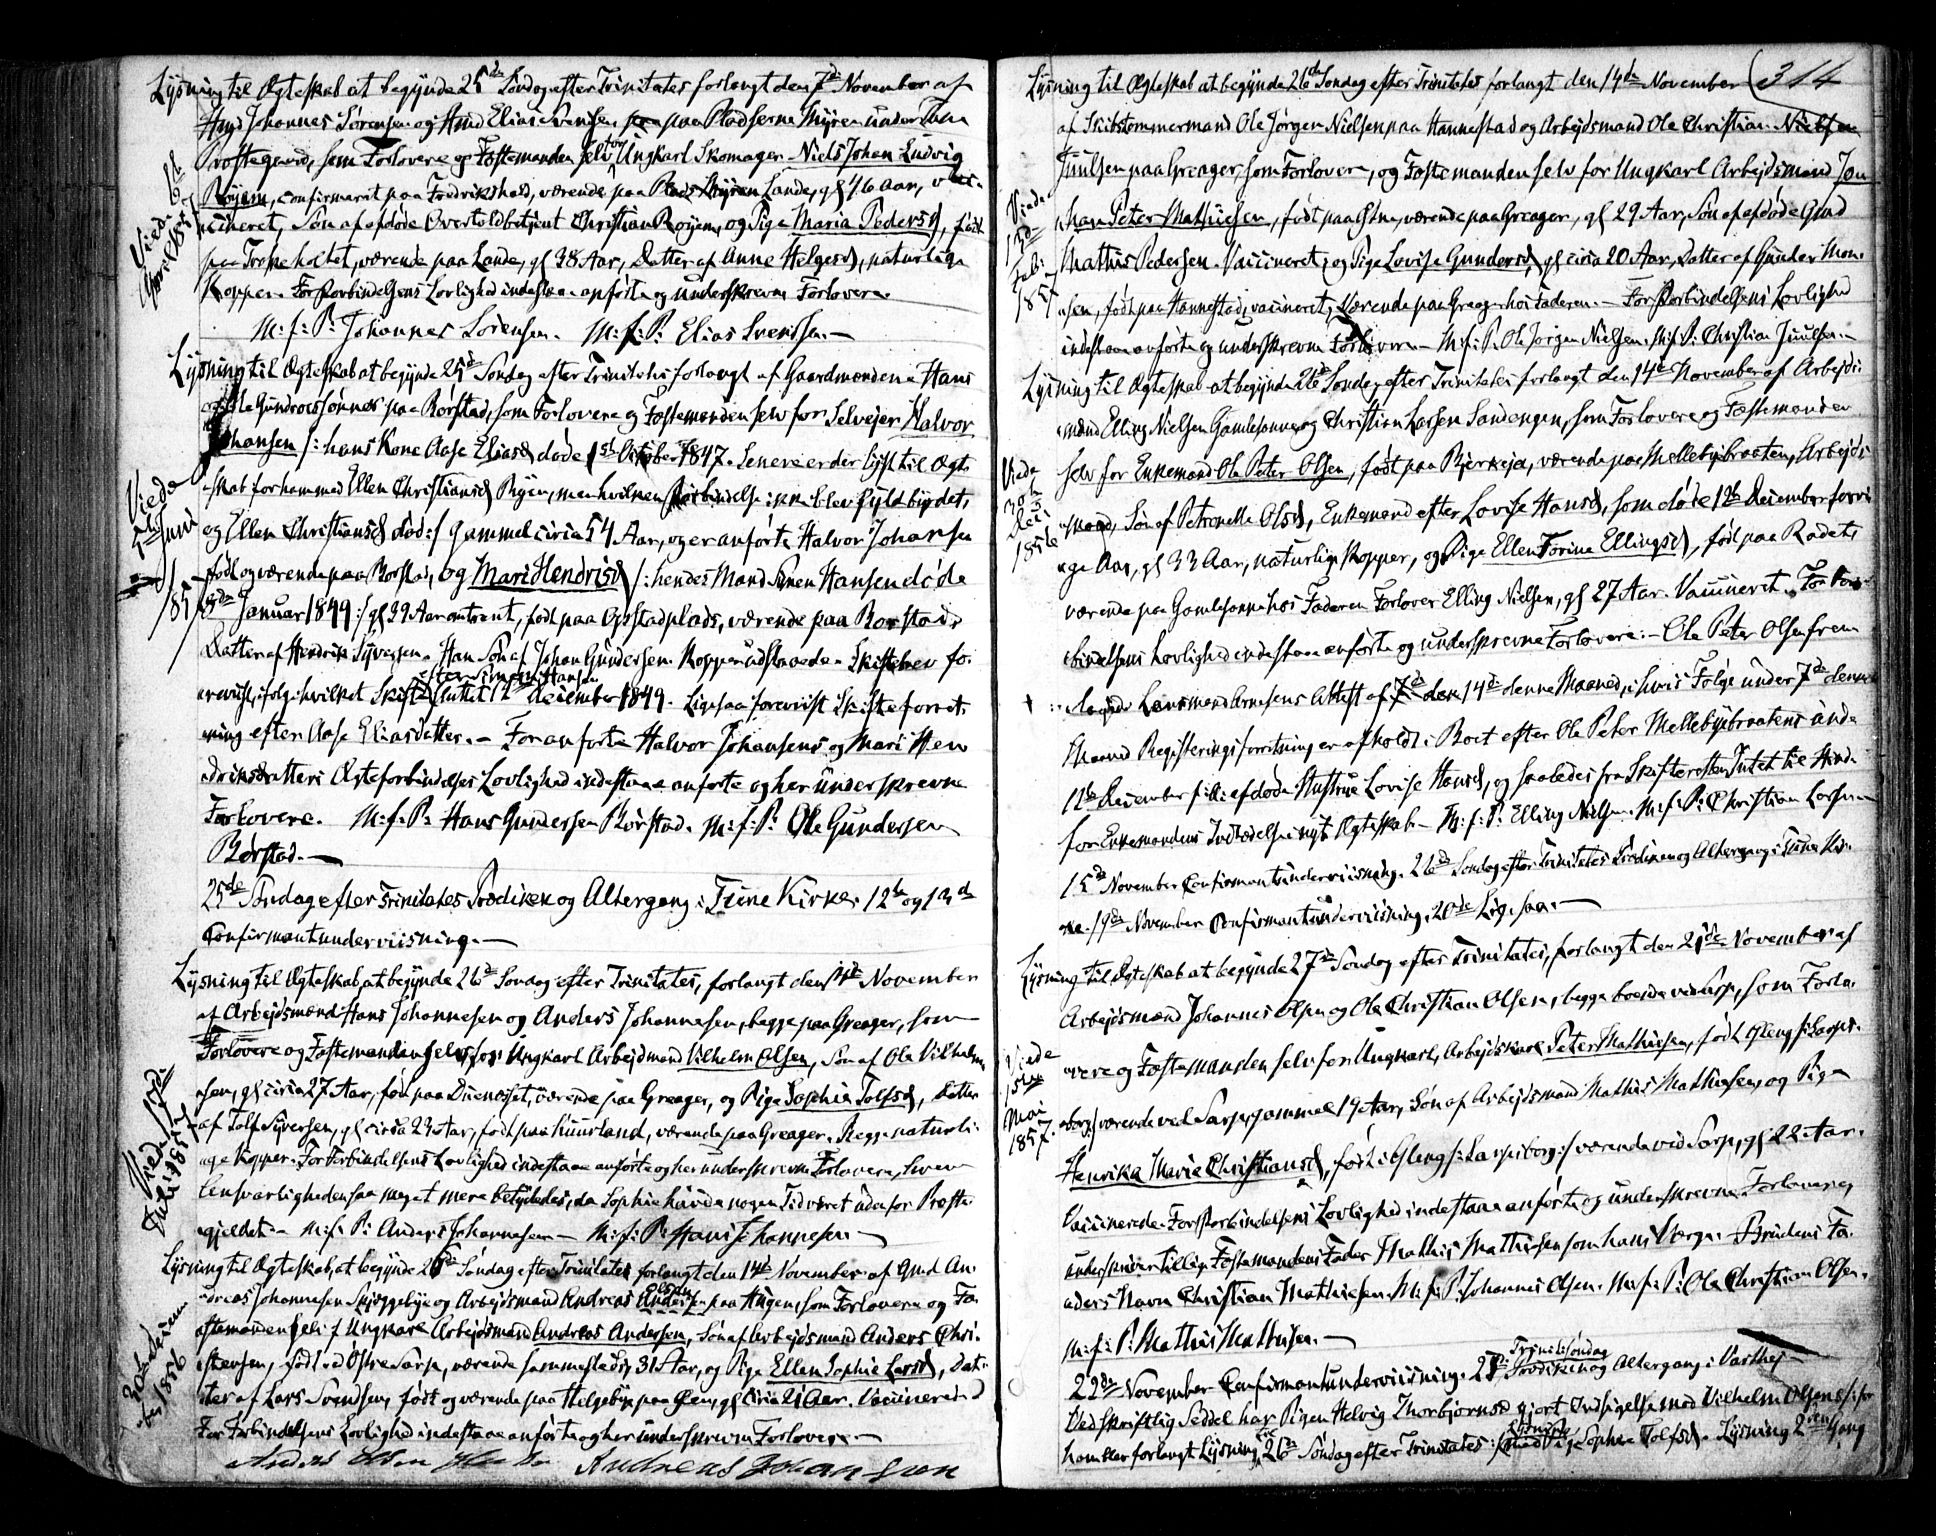 Lysning til Ægteskab at begynde 25de Søndag efter Trinitates forlangt den 7de November af
Gmd Johannes Sørensen og Gmd Elias Svensen paa Pladserne Myren under Tune
Prostegaard, som Forlovere og Fæstemanden selv for Ungkarl Skomager Niels Johan Ludvig
Røyem, confirmeret paa Fredrikshald, værende paa Lande, gl 46 Aar, vac-
cineret, Søn af afdøde Overtoldbetjent Christian Røyem, og Pige Maria Pedersd, født
paa Troppeholtet, værende paa Lande, gl 38 Aar, Datter af Anne Helgesd, naturlige
Kopper. For Forbindelsens Lovlighed indestaae anførte og underskrevne Forlovere.
M:f:P: Johannes Sørensen. M:f:P: Elias Svendsen.—
Viede 6te April 185
Lysning til Ægteskab at begynde 25de Søndag efter Trinitates forlangt af Gaardmændene Hans
og Ole Gundersønner paa Borstad, som Forlovere og Fæstemanden selv for Selvejer Halvor
Johansen /: hans Kone Aase Eliasd døde 1st October 1847. Senere er der lyst til Ægte-
skab for ham med Ellen Christiansd Ryen, men hvilken Forbindelse ikke blev fyldbyrdet,
og Ellen Christiansd død :/ gammel circa 54 Aar, og er anførte Halvor Johansen
født og værende paa Borstad, og Mari Hendrisd /: hendes Mand Simen Hansen døde
8de Januar 1849 :/ gl 39 Aar omtrent, født paa Opstadplads, værende paa Borstad,
Datter af Hendrik Syversen. Han Søn af Johan Gundersen. Kopper udstaaede. Skiftebrev fo-
reviist, ifølge hvilket Skiftet efter Simen Hansen sluttet 12te December 1849. Ligesaa foreviist Skifteforret-
ning efter Aase Eliasdatter.— For anførte Halvor Johansens og Mari Hen-
driksdatters Ægteforbindelses Lovlighed indestaae anførte og her underskrevne
Forlovere. M:f:P: Hans Gundersen Borstad. M:f:P: Ole Gundersen
Borstad.—
Viede 5te Juni 1857
25de Søndag efter Trinitates Prædiken og Altergang i Tune Kirke. 12te og 13de
Confirmantunderviisning.—
Lysning til Ægteskab, at begynde 26de Søndag efter Trinitates, forlangt den 14de November
af Arbejdsmænd Hans Johannesen og Anders Johannesen, begge paa Greager, som
Forlovere og Fæstemanden selv for Ungkarl Arbejdsmand Vilhelm Olsen, Søn af Ole Vilhelm-
sen, gl circa 27 Aar, født paa Duenæset, værende paa Greager, og Pige Sophie Tolfsd, Datter
af Tolf Syversen, gl circa 23 Aar, født paa Huurland, værende paa Greager. Begge naturli-
ge Kopper. For Forbindelsens Lovlighed indestaae anførte og her underskrevne Forlovere, hven
lensvarligheden saa meget mere betydedes, da Sophie havde nogen Tid været udenfor Præste-
gjeldet.— M:f:P: Anders Johannesen— M:f:P: Hans Johannesen.—
Lysning til Ægteskab, at begynde 26de Søndag efter Trinitates forlangt den 14de November af Gmd An-
dreas Johannesen Skjøggebye og Arbejdsmand Andreas Olsen paa Hugen, som Forlovere og Fæ-
stemanden selv f Ungkarl Arbejdsmand Andreas Andersen, Søn af Arbejdsmand Anders Chri-
stensen, født ved Østre Sarp, værende sammesteds, 31 Aar, og Pige Ellen Sophie Larsd, Dat-
ter af Lars Svendsen, født og værende paa Helgebye paa Øen, gl circa 21 Aar. Vaccinerede
For Forbindelsens Lovlighed indestaae anførte og her underskrevne Forlovere.—
Andreas Johansen
314
Lysning til Ægteskab at begynde 26de Søndag efter Trinitates forlangt den 14de November
af Skibstømmermand Ole Jørgen Nielsen paa Hannestad og Arbejdsmand Ole Christian Nielsen
Juulsen paa Greager, som Forlovere, og Fæstemanden selv for Ungkarl Arbejdsmand Jo-
han Peter Mathiesen, født paa, værende paa Greager, gl 29 Aar, Søn af afdøde Gmd
Mathis Pedersen. Vaccineret; og Pige Lovise Gundersd, gl circa 20 Aar, Datter af Gunder Mon-
sen, født paa Hannestad, vaccineret, værende paa Greager hos Faderen.— For Forbindelsens Lovlighed
indestaae anførte og underskrevne Forlovere.— M:f:P: Ole Jørgen Nielsen. M:f:P: Christian Juulsen.—
Viede 13de Febr. 1857
Lysning til Ægteskab at begynde 26de Søndag efter Trinitates forlangt den 14de November af Arbejds-
mænd Elling Nielsen Gamlesanne og Christian Larsen Sandengen, som Forlovere og Fæstemanden
selv for Enkemand Ole Peter Olsen, født paa Bjerkeja, værende paa Mellebybraaten, Arbejds-
mand, Søn af Petronelle Olsd, Enkemand efter Lovise Hansd, som døde 12te December forri-
ge Aar, gl 33 Aar, naturlige Kopper, og Pige Ellen Torine Ellingsd, født paa Rødet,
værende paa Gamlesanne hos Faderen Forlover Elling Nielsen, gl 27 Aar. Vaccineret. For For-
bindelsens Lovlighed indestaae anførte og underskrevne Forlovere:— Ole Peter Olsen frem-
lagde Lensmand Arnesens Attest af 14de denne Maaned, i hvis Følge under 7de denne
Maaned Registeringsforretning er afholdt i Boet efter Ole Peter Mellebybraatens unde
12te December f: A: afdøde Hustrue Lovise Hansd, og saaledes fra Skifteretten Intet til Hind-
for Enkemandens Indtrædelse i nyt Ægteskab.— M:f:P: Elling Nielsen. M:f:P: Christian Larsen—
Viede 30te Dec. 1856
15de November Confirmantunderviisning. 26de Søndag efter Trinitates Prædiken og Altergang i Tune Kir-
ke. 19de November Confirmantunderviisning. 20de Ligesaa.—
Lysning til Ægteskab at begynde 27de Søndag efter Trinitates, forlangt den 21de November af
Arbejdsmænd Johannes Olsen og Ole Christian Olsen, begge boende ved Sarp, som Forlo-
vere og Fæstemanden selv for Ungkarl, Arbejdskarl Peter Mathiesen, født i Gleng /: Sarps-
borg :/ værende ved Sarp, gammel 19 Aar, Søn af Arbejdsmand Mathis Mathiesen, og Pige
Henrika Marie Christiansd, født i Gleng /: Sarpsborg :/ værende ved Sarp, gl 22 Aar.
Vaccinerede. For Forbindelsens Lovlighed indestaae anførte og underskrevne Forlovere, og
underskriver tillige Fæstemandens Fader Mathis Mathiesen som hans Værge. Brudens Fa-
ders Navn Christian Mathiesen. M:f:P: Johannes Olsen. M:f:P: Ole Christian Olsen.
M:f:P: Mathis Mathiesen.—
Viede 15de Mai 1857.
22de November Confirmantunderviisning. 27de Trinitatis Søndag Prædiken og Altergang i Varteig—
Ved skriftlig Seddel har Pigen Helvig Thorbjørnsd gjort Indsigelse mod Vilhelm Olsens /: for
ham har forlangt Lysning til 26de Søndag efter Trinitates :/ Lysning med Pige Sophie Tolfsd. Lysning 2den Gang